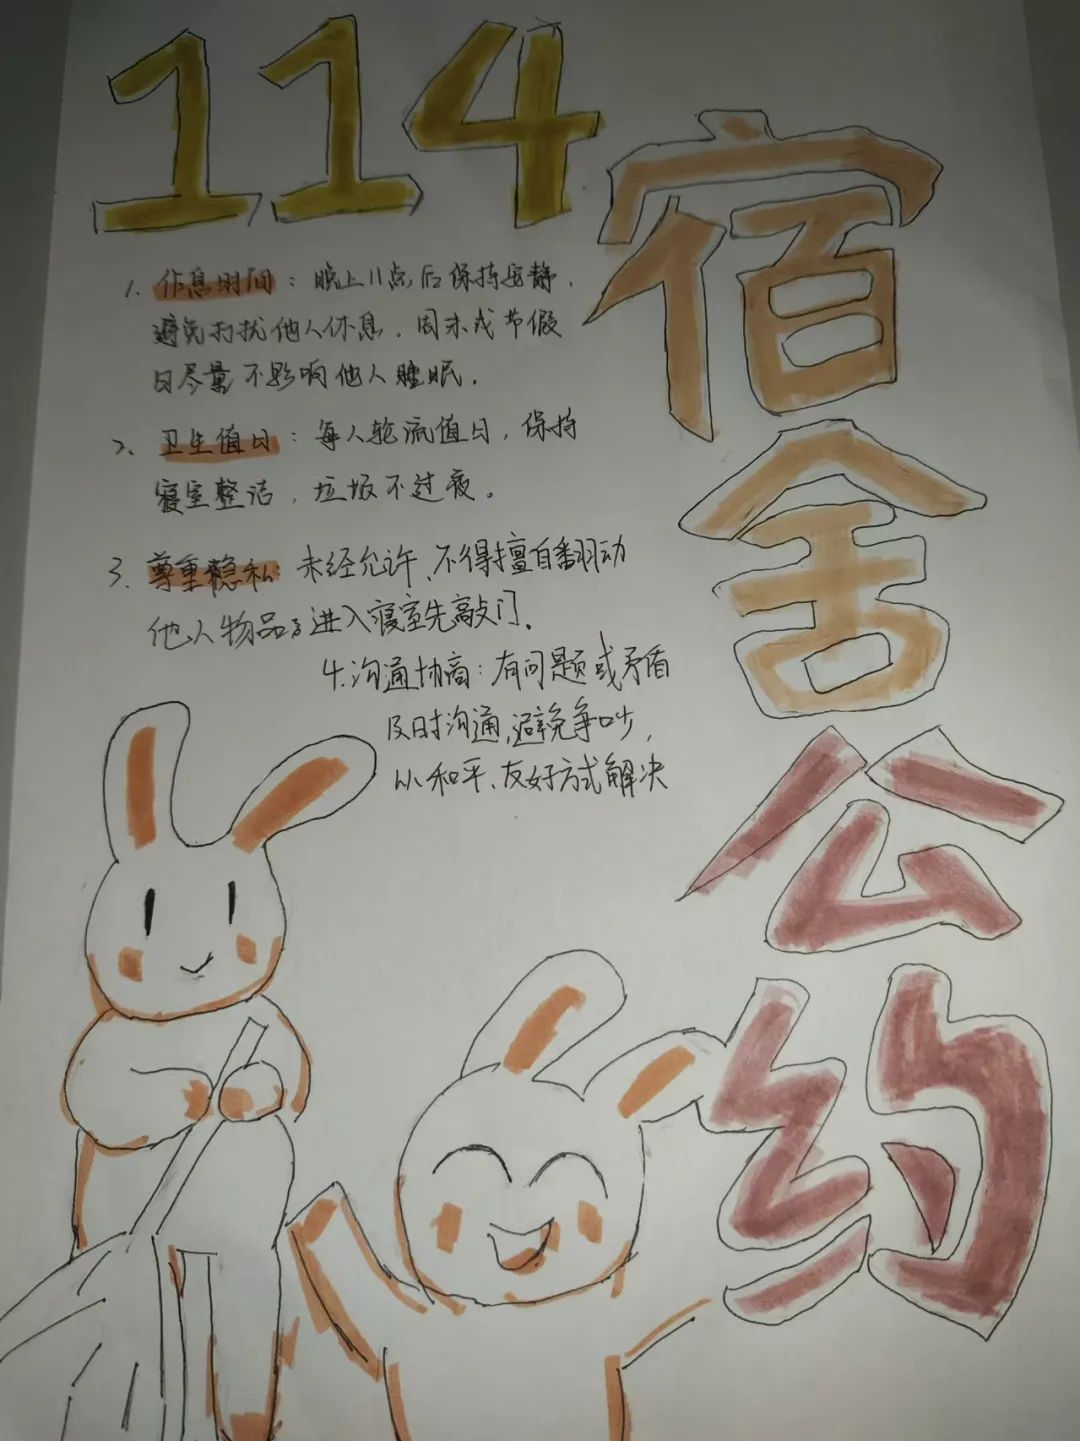 114
宿舍公约
1. 作息时间：晚上11点后保持安静，
避免打扰他人休息．周末或节假
日尽量不影响他人睡眠．
2、卫生值日：每人轮流值日，保持
寝室整洁，垃圾不过夜。
3. 尊重稳私：未经允许、不得擅自翻动
他人物品；进入寝室先敲门．
4. 沟通协商：有问题或矛盾
及时沟通，避免争吵，
以和平、友好方式解决